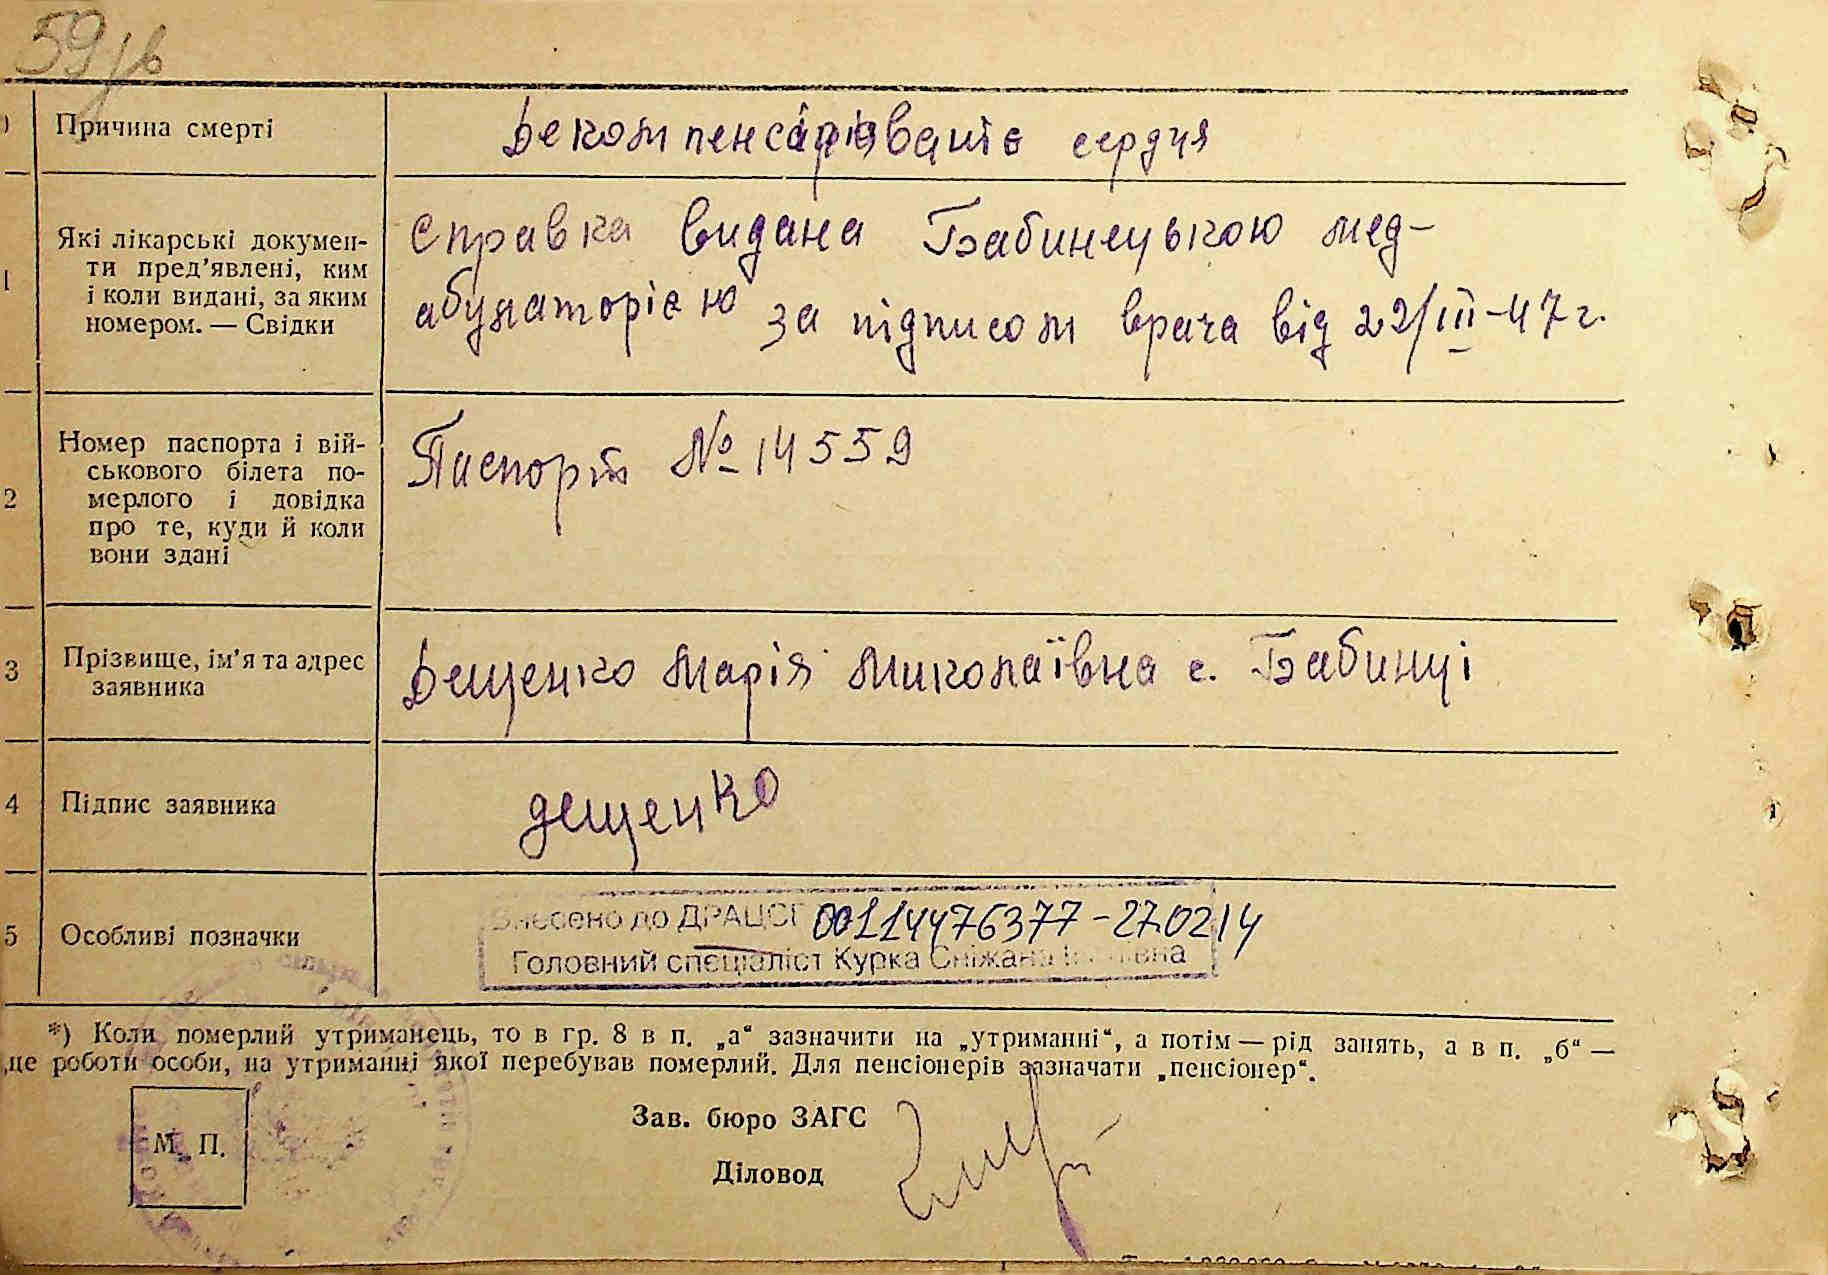 59зв
Причина смерті
серця
Які лікарські докумен-
ти пред’явлені, ким
і коли видані, за яким
номером. — Свідки
Справка видана Бабинецькою мед-
абулаторією за підписом врача від 22/III-47 г.
2
Номер паспорта і вій-
ськового білета по-
мерлого і довідка
про те, куди й коли
вони здані
Паспорт № 14559
3
Прізвище, ім’я та адрес
заявника
Дещенко Марія Миколаївна с. Бабинці
4
Підпис заявника
Дещенко
5
Особливі позначки
Внесено до ДРАЦСГ 00114476377-270214
Головний спеціаліст Курка Сніжана
*) Коли померлий утриманець, то в гр. 8 в п. „а“ зазначити на „утриманні“, а потім — рід занять, а в п. „б“ —
це роботи особи, на утриманні якої перебував померлий. Для пенсіонерів зазначати „пенсіонер“.
Зав. бюро ЗАГС
М. П.
Діловод